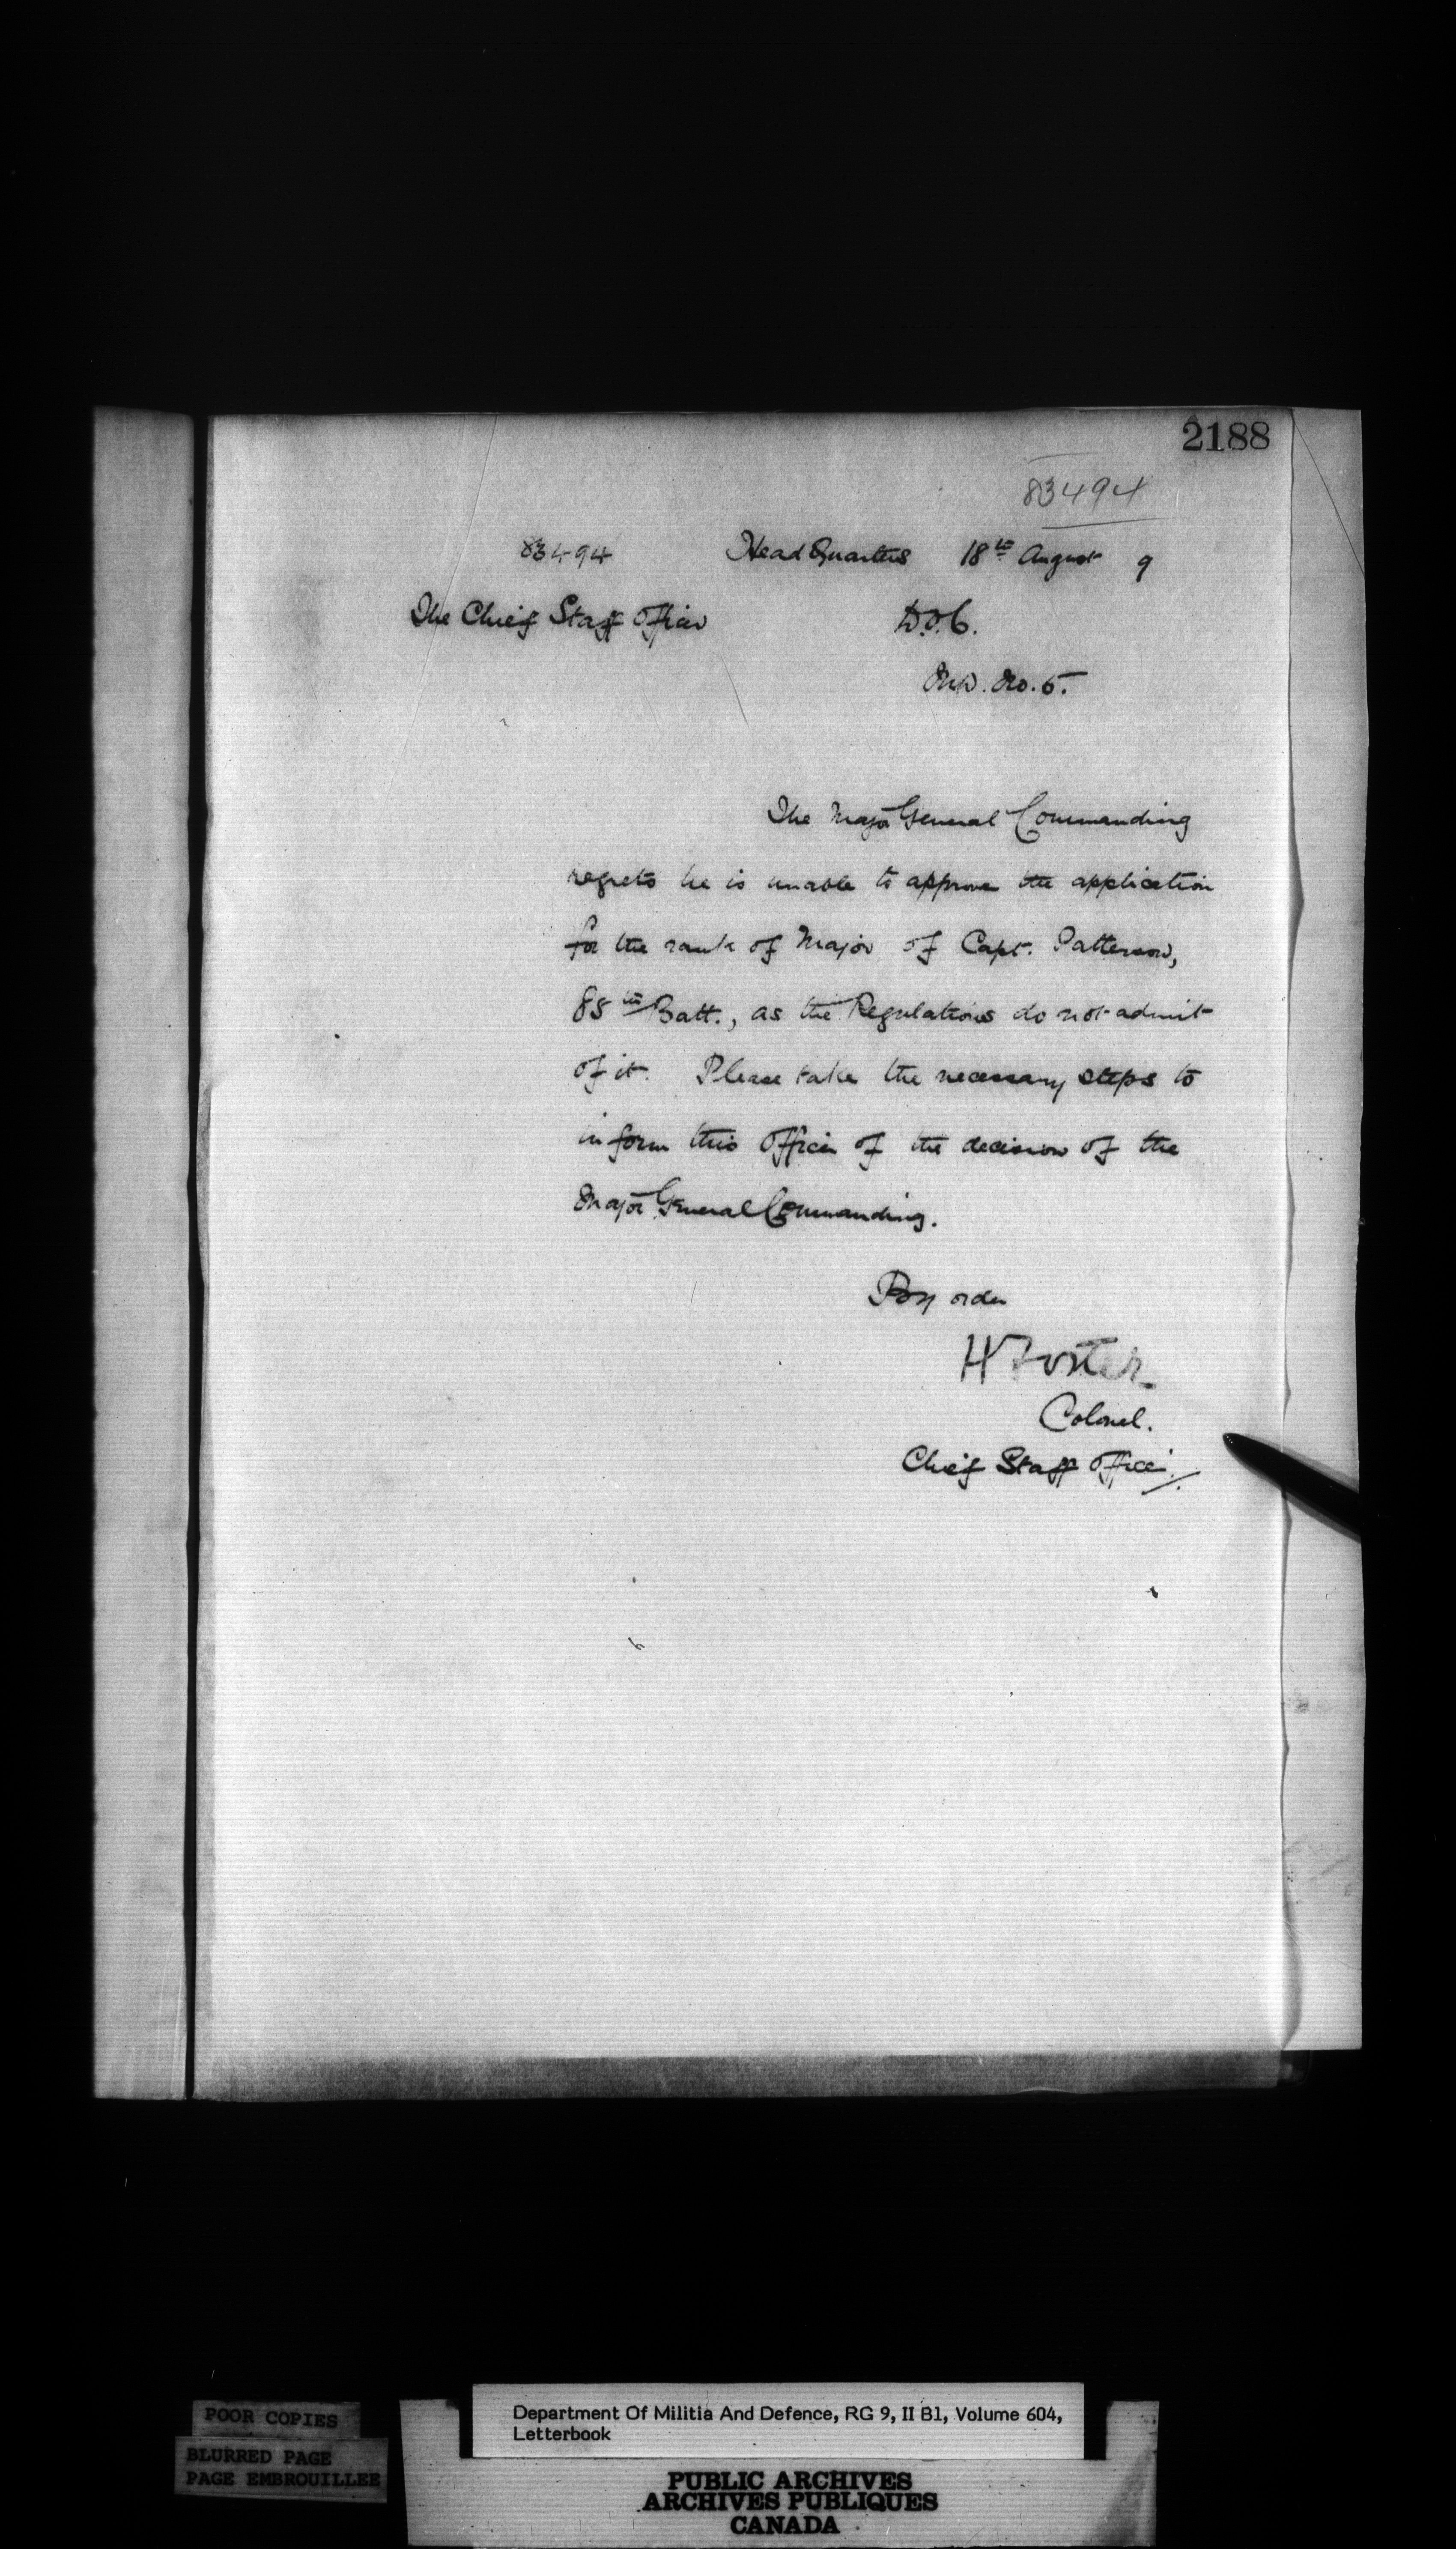 2188
83494
83494 Head Quarters 18th August 9
The Chief Staff Officer D.O.C.
M.D. No. 5.
The Major General Commanding
regrets he is unable to approve the application
for the rank of Major of Capt. Patterson,
85th Batt., as the Regulations do not admit
of it. Please take the necessary steps to
inform this Officer of the decision of the
Major General Commanding.
By order
H Foster
Colonel.
Chief Staff Officer.
POOR COPIES
BLURRED PAGE
PAGE EMBROUILLEE
Department Of Militia And Defence, RG 9, II B1, Volume 604,
Letterbook
PUBLIC ARCHIVES
ARCHIVES PUBLIQUES
CANADA